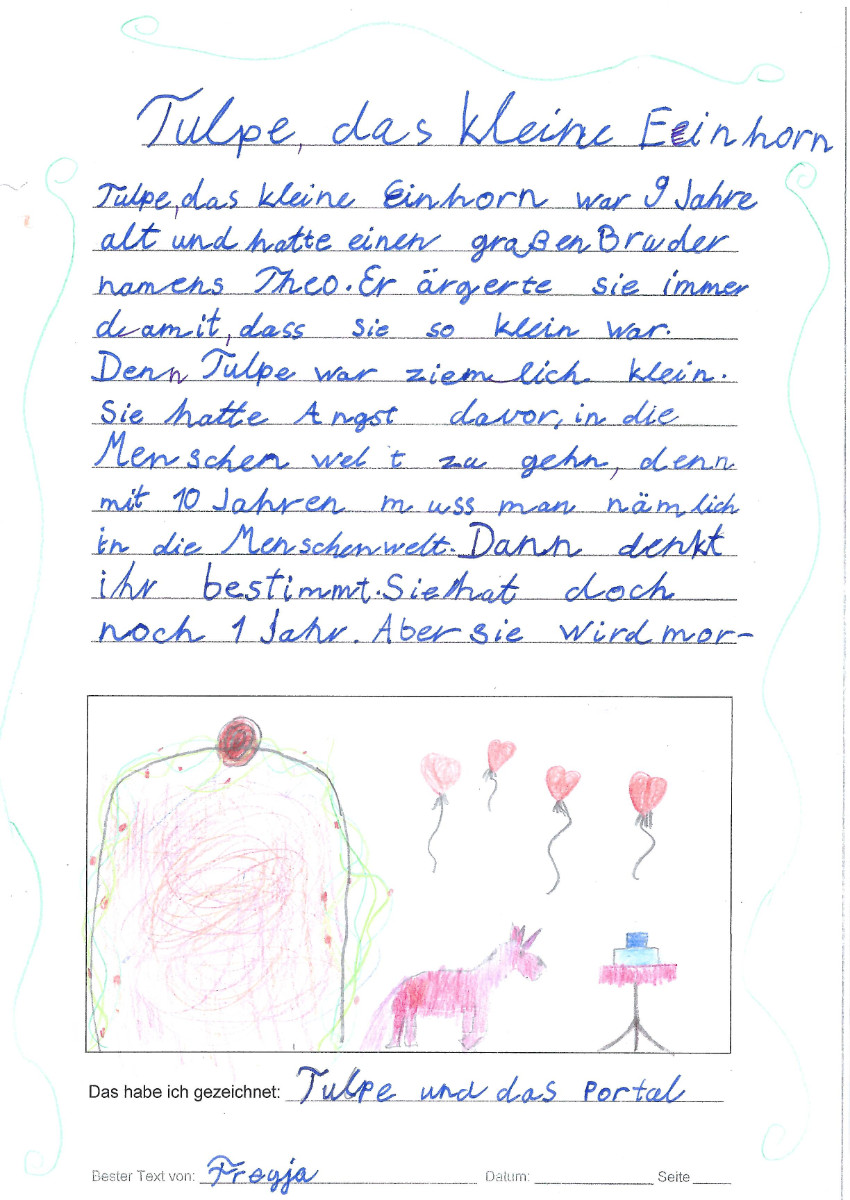 Tulpe, das kleine Eeinhorn
Tulpe, das kleine Einhorn war 9 Jahre
alt und hatte einen graßen Bruder
namens Theo. Er ärgerte sie immer
damit, dass sie so klein war.
Denn Tulpe war ziemlich klein.
Sie hatte Angst davor, in die
Menschenwelt zu gehn, denn
mit 10 Jahren muss man nämlich
in die Menschenwelt. Dann denkt
ihr bestimmt. Sie hat doch
noch 1 Jahr. Aber sie wird mor-
Das habe ich gezeichnet: Tulpe und das Portal
Bester Text von: Freyja Datum: Seite